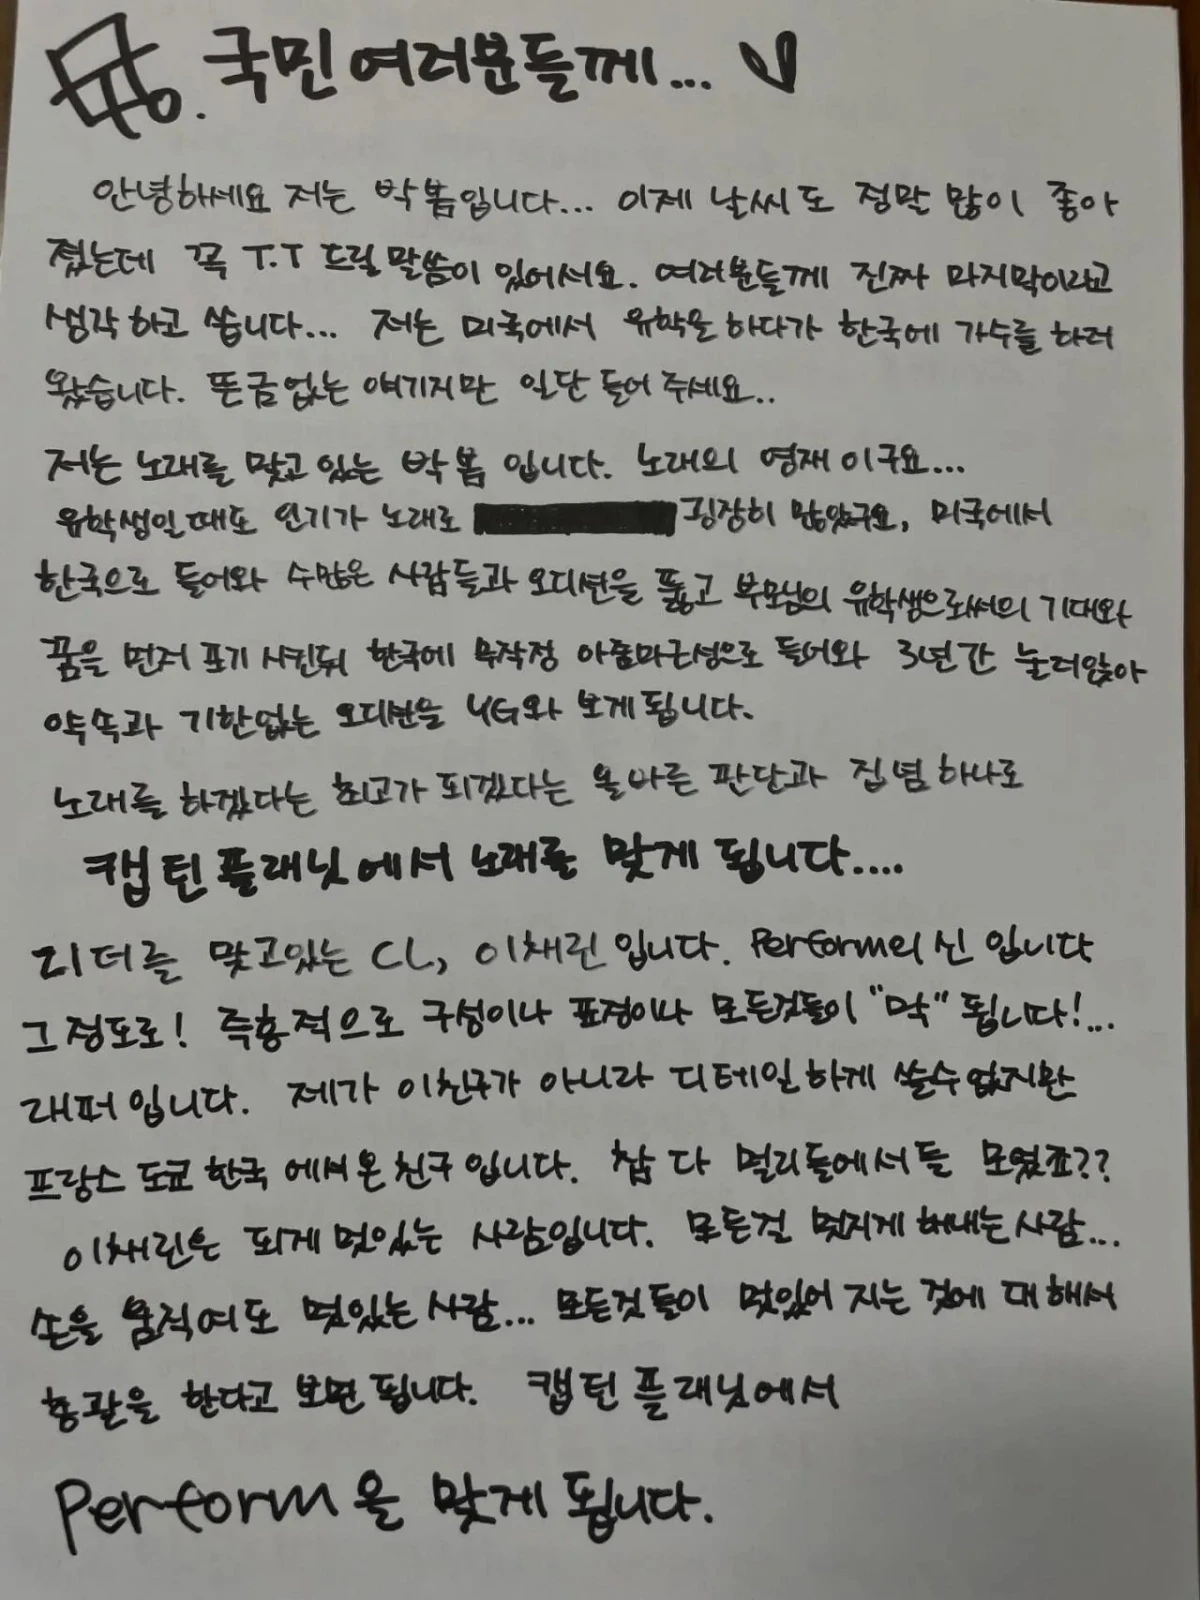 국민여러분들께...
안녕하세요 저는 박봄입니다... 이제 날씨도 정말 많이 좋아
졌는데 꼭 T.T 드릴말씀이 있어서요. 여러분들께 진짜 마지막이라고
생각하고 씁니다... 저는 미국에서 유학을 하다가 한국에 가수를 하러
왔습니다. 뜬금없는 얘기지만 일단 들어주세요..
저는 노래를 맞고있는 박봄입니다. 노래의 영재이구요...
유학생일때도 인기가 노래로 굉장히 많았구요, 미국에서
한국으로 들어와 수많은 사람들과 오디션을 뚫고 부모님의 유학생으로써의 기대와
꿈을 먼저 포기 시킨뒤 한국에 무작정 아줌마근성으로 들어와 3년간 눌러앉아
약속과 기한없는 오디션을 YG와 보게됩니다.
노래를 하겠다는 최고가 되겠다는 올바른 판단과 집념하나로
캡틴플래닛에서 노래를 맞게 됩니다....
리더를 맞고있는 CL, 이채린입니다. Perform의 신 입니다
그정도로! 즉흥적으로 구성이나 표정이나 모든것들이 "막" 됩니다!...
래퍼입니다. 제가 이친구가 아니라 디테일하게 쓸수없지만
프랑스 도쿄 한국에서온친구입니다. 참 다 멀리들에서들 모였죠??
이채린은 되게 멋있는 사람입니다. 모든걸 멋지게 해내는사람...
손을 움직여도 멋있는사람... 모든것들이 멋있어지는 것에 대해서
총괄을 한다고 보면 됩니다. 캡틴플래닛에서
Perform을 맞게 됩니다.